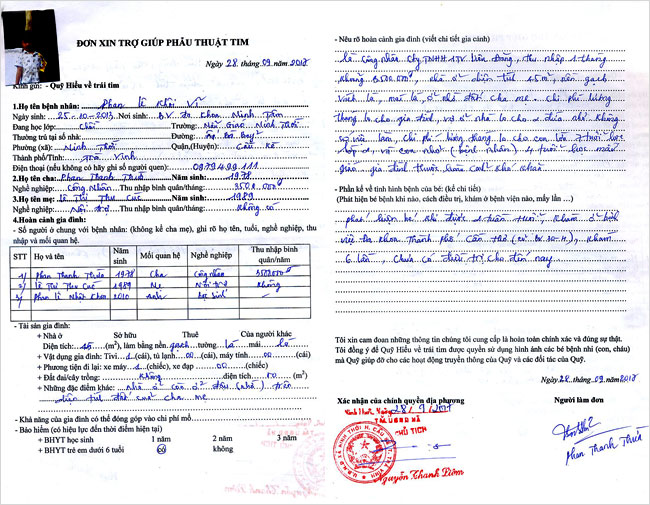 ĐƠN XIN TRỢ GIÚP PHẪU THUẬT TIM
Ngày 28 tháng 09 năm 2017
Kính gửi: - Quỹ Hiểu về trái tim
1.Họ tên bệnh nhân: Phan Lê Khôi Vĩ
Ngày sinh: 25-10-2013 Nơi sinh: BV. Đa Khoa Minh Tâm
Đang học lớp: Chồi Trường: Mẫu Giáo Ninh Thới
Thường trú tại số nhà: Đường:
Phường (xã): Ninh Thới Quận,(Huyện): Cầu Kè
Thành phố/Tỉnh: Trà Vinh
Điện thoại (nếu không có hãy ghi số người quen): 0979499111
2.Họ tên cha: Phan Thanh Thừa Năm sinh: 1978
Nghề nghiệp: Công Nhân Thu nhập bình quân/tháng: 3500.000đ
3.Họ tên mẹ: Lê Thị Thu Cúc Năm sinh: 1989
Nghề nghiệp: Nội trợ Thu nhập bình quân/tháng: Không có
4.Hoàn cảnh gia đình:
- Số người ở chung với bệnh nhân: (không kể cha mẹ), ghi rõ họ tên, tuổi, nghề nghiệp, thu
nhập và mối quan hệ.
STT Họ và tên Năm sinh Mối quan hệ Nghề nghiệp Thu nhập bình quân/năm
1) Phan Thanh Thừa 1978 Cha Công nhân
2) Lê Thị Thu Cúc 1989 Mẹ Nội trợ Không
3) Phan Lê Nhật 2010 anh học sinh
- Tài sản gia đình:
+ Nhà ở Sở hữu Thuê Của người khác
Diện tích: 45 (m²), làm bằng nền gạch tường lá mái lá
+ Vật dụng gia đình: Tivi 1 (cái), tủ lạnh 00 (cái), máy tính 00 (cái)
+ Phương tiện đi lại: xe máy 1 (chiếc), xe đạp 00 (chiếc)
+ Đất đai/cây trồng: Không diện tích 00 (m²)
+ Những đặc điểm khác: Nhà ở căn ở đậu (nhờ) trên
diện tích đất của cha mẹ
- Khả năng của gia đình có thể đóng góp vào chi phí mổ
- Bảo hiểm (có hiệu lực đến thời điểm hiện tại)
+ BHYT học sinh 1 năm 2 năm 3 năm
+ BHYT trẻ em dưới 6 tuổi có không
- Nêu rõ hoàn cảnh gia đình (viết chi tiết gia cảnh)
là công nhân Cty TNHH 1TV thu nhập 1 tháng
khoảng 3.500.000đ, nhà ở diện tích 45m², nền gạch
vách lá, mái lá, ở nhờ đất cha mẹ. chi phí lương
tháng lo cho gia đình vợ ở nhà lo cho 2 đứa nhỏ không
việc làm, chi phí hàng tháng lo cho con lớn 7 tuổi học
lớp 2 và con nhỏ (bệnh nhân) 4 tuổi học mẫu
giáo gia đình thuộc hoàn cảnh khó khăn
- Phần kể về tình hình bệnh của bé: (kể chi tiết)
(Phát hiện bé bệnh khi nào, cách điều trị, khám ở bệnh viện nào, mấy lần …)
phát hiện bé khi được 1 tuần tuổi khám ở bệnh
viện Đa khoa Thành phố Cần Thơ, khám
6 lần, chưa có điều trị cho đến nay
Tôi xin cam đoan những thông tin chúng tôi cung cấp là hoàn toàn chính xác và đúng sự thật.
Tôi đồng ý để Quỹ Hiểu về trái tim được quyền sử dụng hình ảnh các bé bệnh nhi (con, cháu)
mà Quỹ giúp đỡ cho các hoạt động truyền thông của Quỹ và các đối tác của Quỹ.
Ngày 28 tháng 09 năm 2017
Xác nhận của chính quyền địa phương Người làm đơn
Ninh Thới, Ngày 28/9/2017
TM.UBND XÃ
CHỦ TỊCH
Nguyễn Thanh Liêm
Phan Thanh Thừa